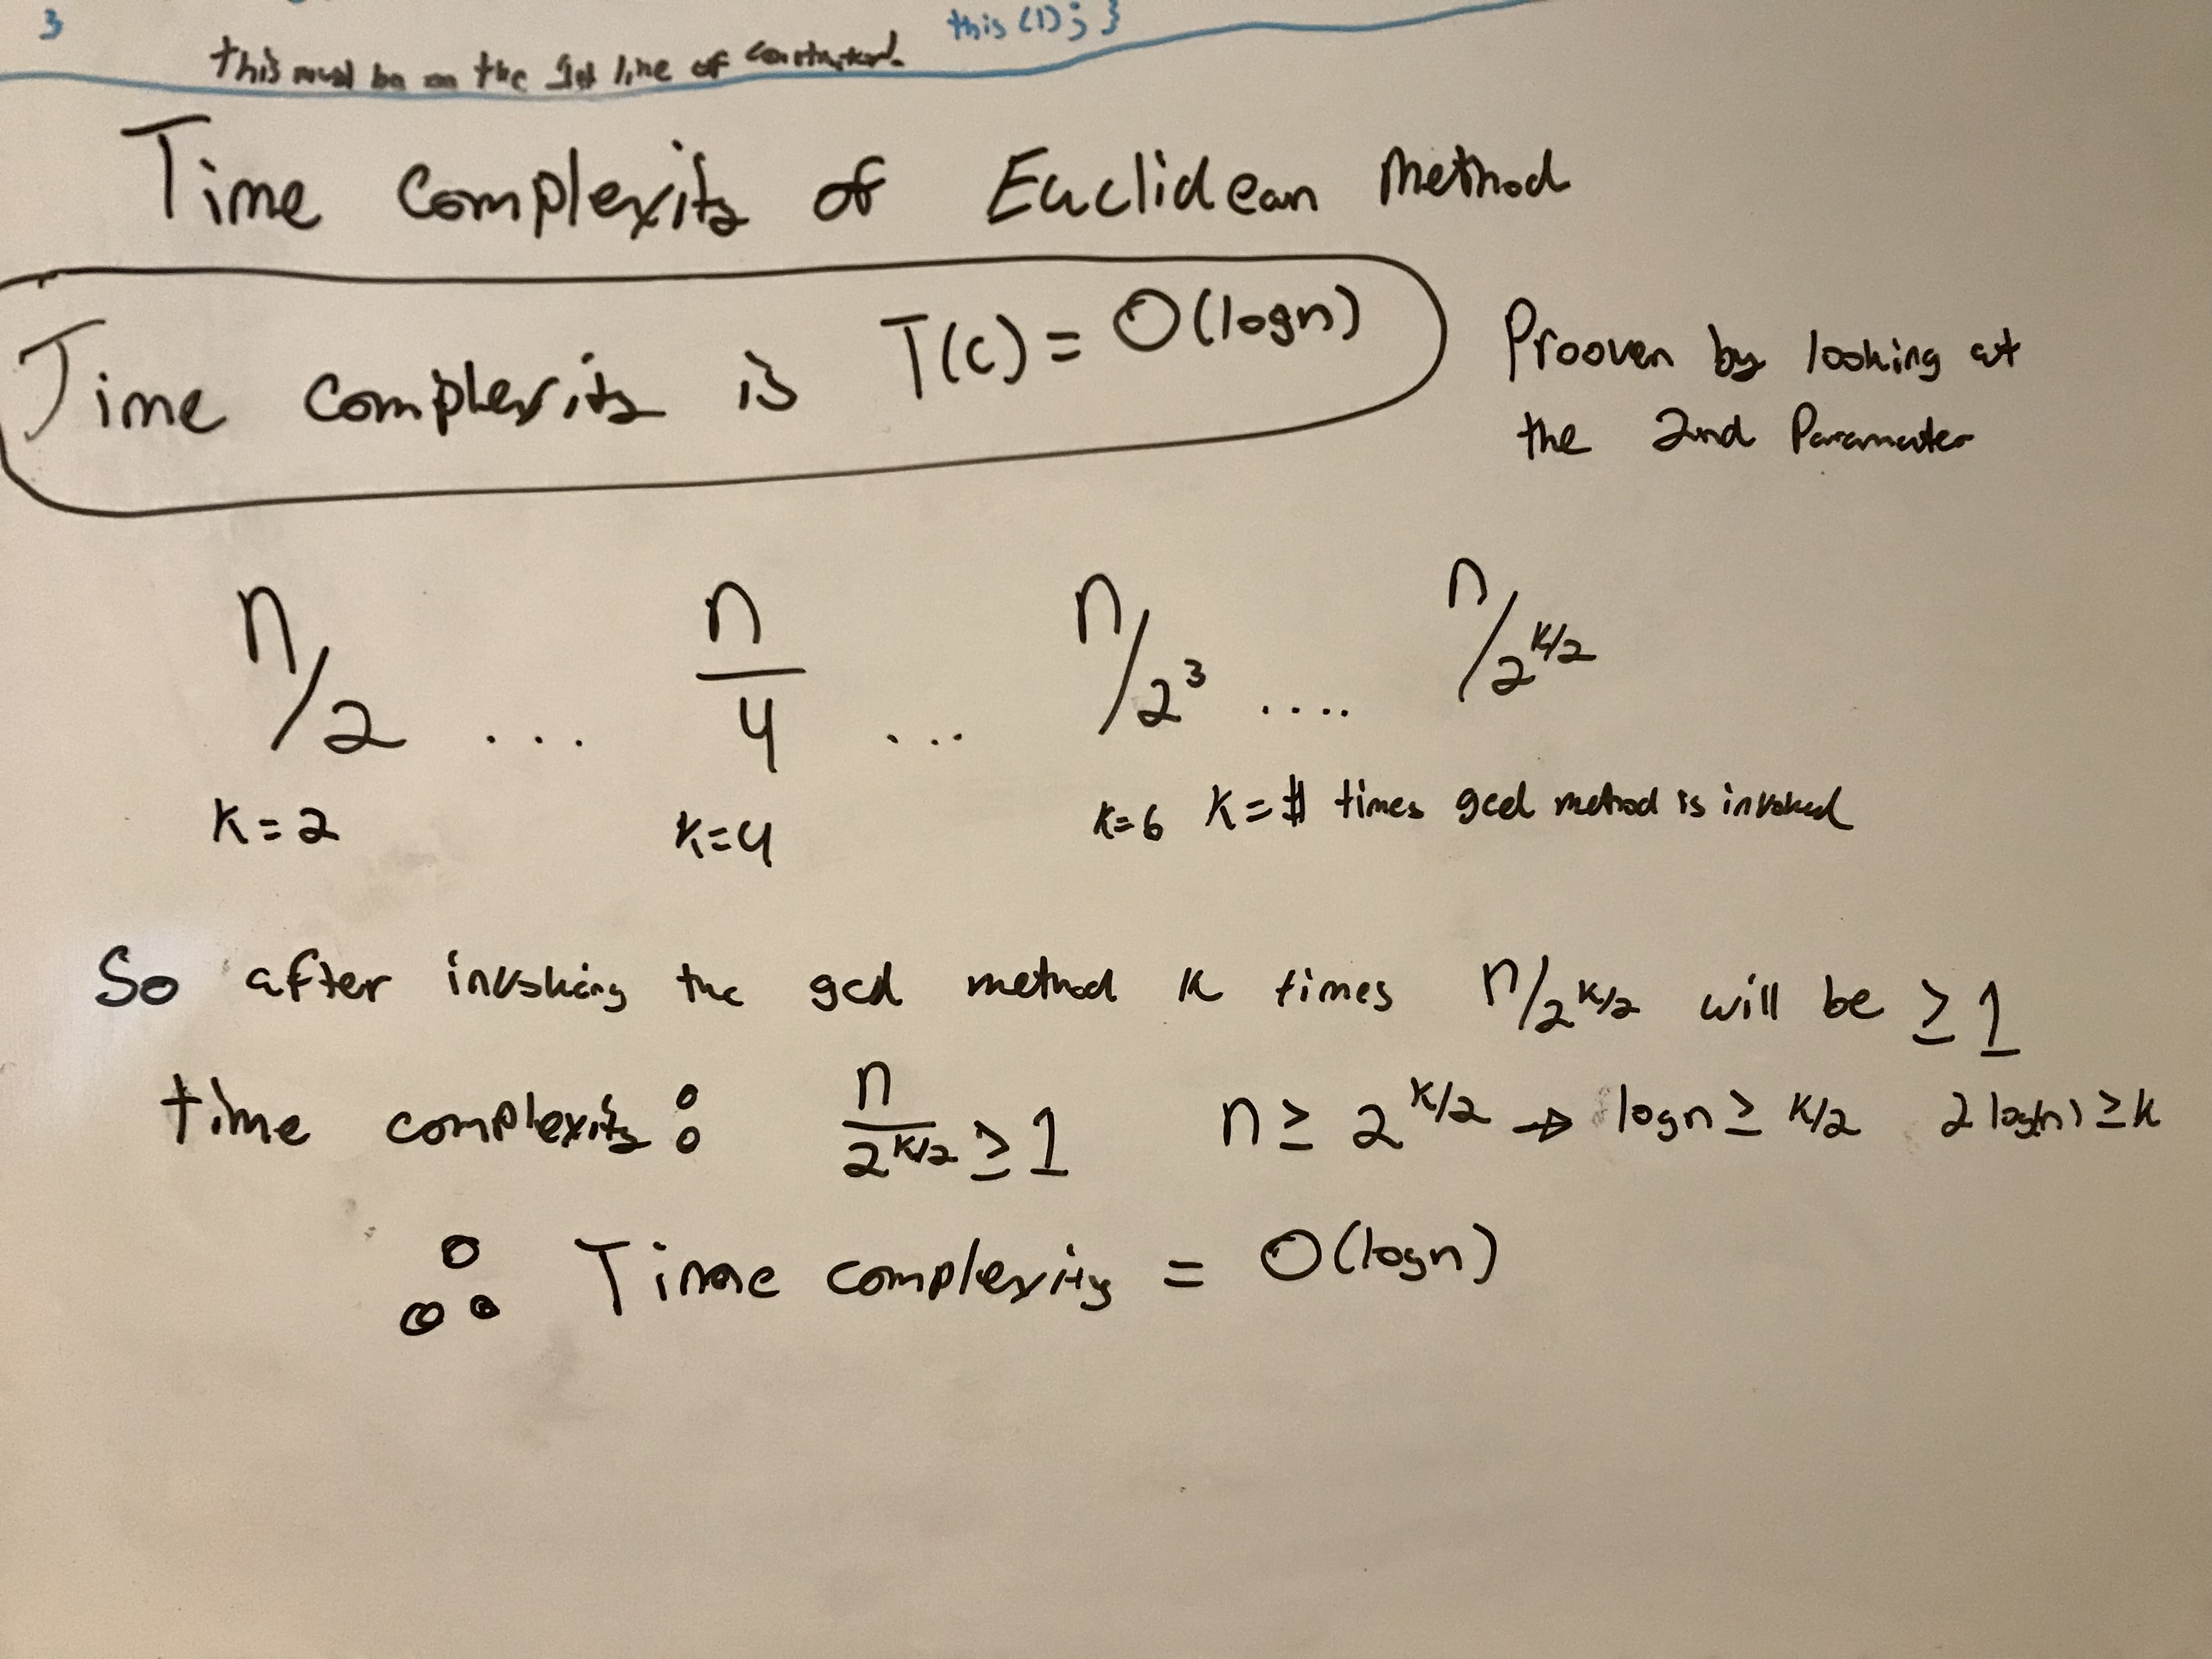 }
this (1); }
this must be on the 1st line of constructor.
Time Complexity of Euclidean Method
Time complexity is T(C) = O(logn)
Prooven by looking at
the 2nd Parameter
n/2 ... n/4 ... n/2^3 .... n/2^k/2
K=2 K=4 K=6 K=# times gcd method is invoked
So after invoking the gcd method K times n/2^k/2 will be ≥ 1
time complexity: n/2^k/2 ≥ 1 n ≥ 2^k/2 → logn ≥ k/2 2 log(n) ≥ k
∴ Time complexity = O(logn)